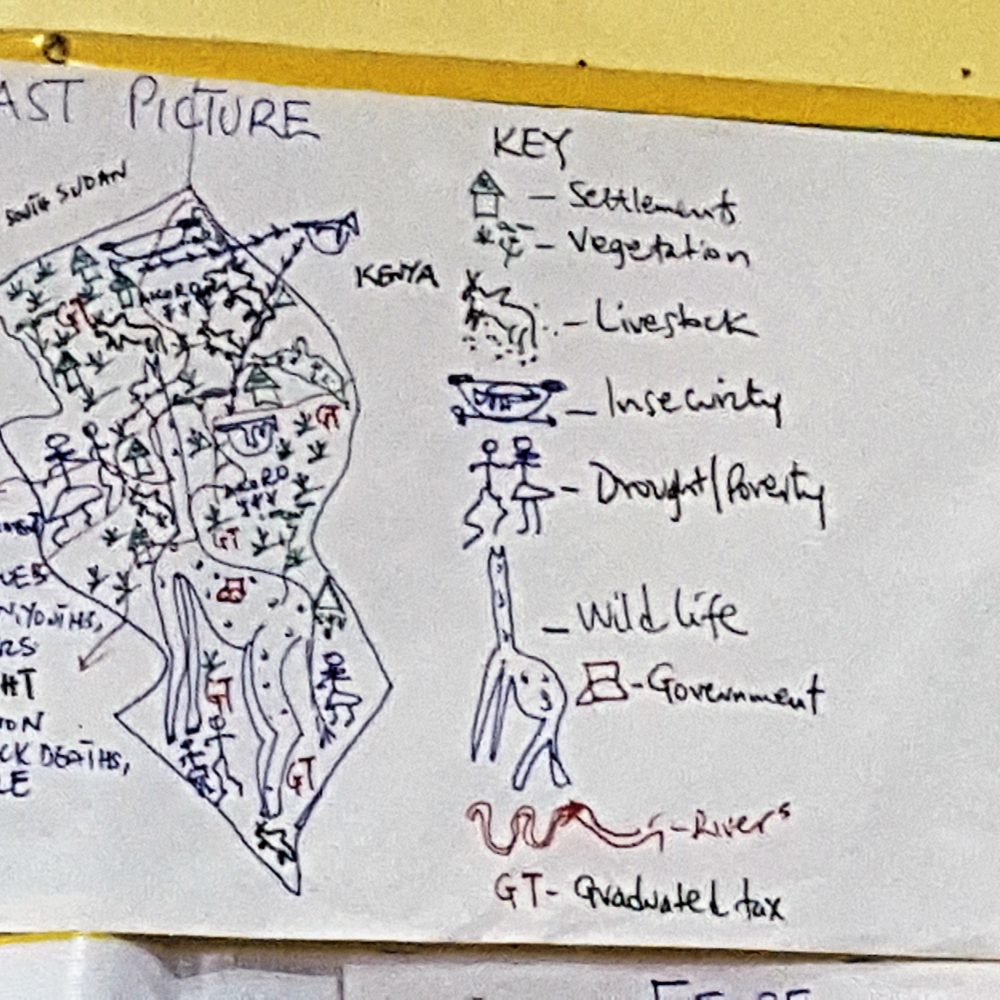 AST PICTURE
SOUTH SUDAN
KENYA
GT
ACORD
GT
ACORD
GT
GT
GT
UES
N, YOUTHS,
RS
HT
ION
CK DEATHS,
LE
KEY
- Settlements
- Vegetation
- Livestock
- Insecurity
- Drought/Poverty
- Wild life
- Government
- Rivers
GT - Graduated tax